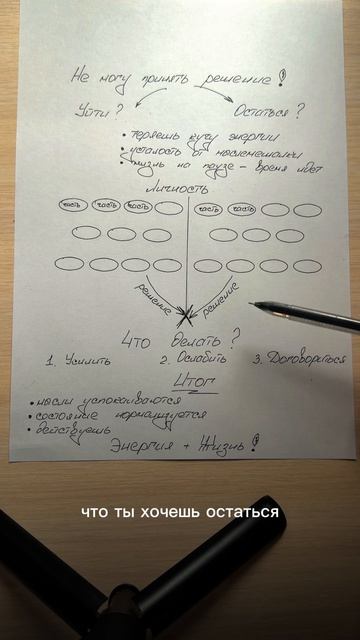 Не могу принять решение!
Уйти? Остаться?
• теряешь кучу энергии
• усталость от мыслемешалки
• жизнь на паузе – время идет
Личность
часть часть часть часть часть
решение решение
Что делать?
1. Усилить 2. Ослабить 3. Договориться
Итог
• мысли успокаиваются
• состояние нормализуется
• действуешь
Энергия + Жизнь!
что ты хочешь остаться